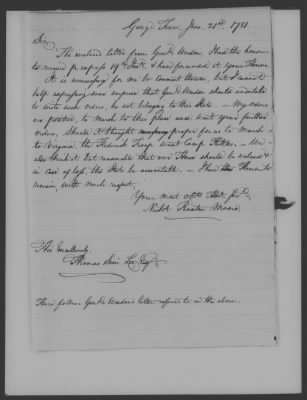 George Town Jan. 21st 1781
Sir
The inclosed letter from Genl. Weedon I had the honor
to receive pr express 19th Inst. I have forwarded it your Excy.
It is unnecessary for me to comment thereon, but I cannot
help expressing some surprise that Genl. Weedon should undertake
to write such orders, he not belonging to this State. — My orders
are positive, to march to this place and wait your further
orders, Should it be thought necessary proper for us to march
to Virginia, the Frederick Troop want Camp Kettles, — We
also think it but reasonable that our Horses should be valued &
in case of loss, the State be accountable. — I have the Honor to
remain, with much respect,
Your most Obt. Hble Servt.
Nichs. Ruxton Moore
His Excellency
Thomas Sim Lee Esqr.
There follows Genl. Weedon's letter referred to in the above.